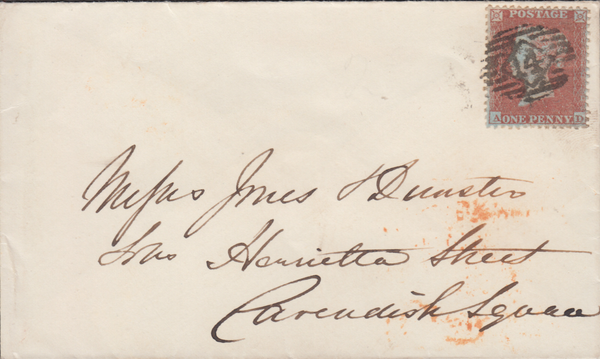 POSTAGE
ONE PENNY
A D
Messrs Jones & Dunster
Henrietta Street
Cavendish Square